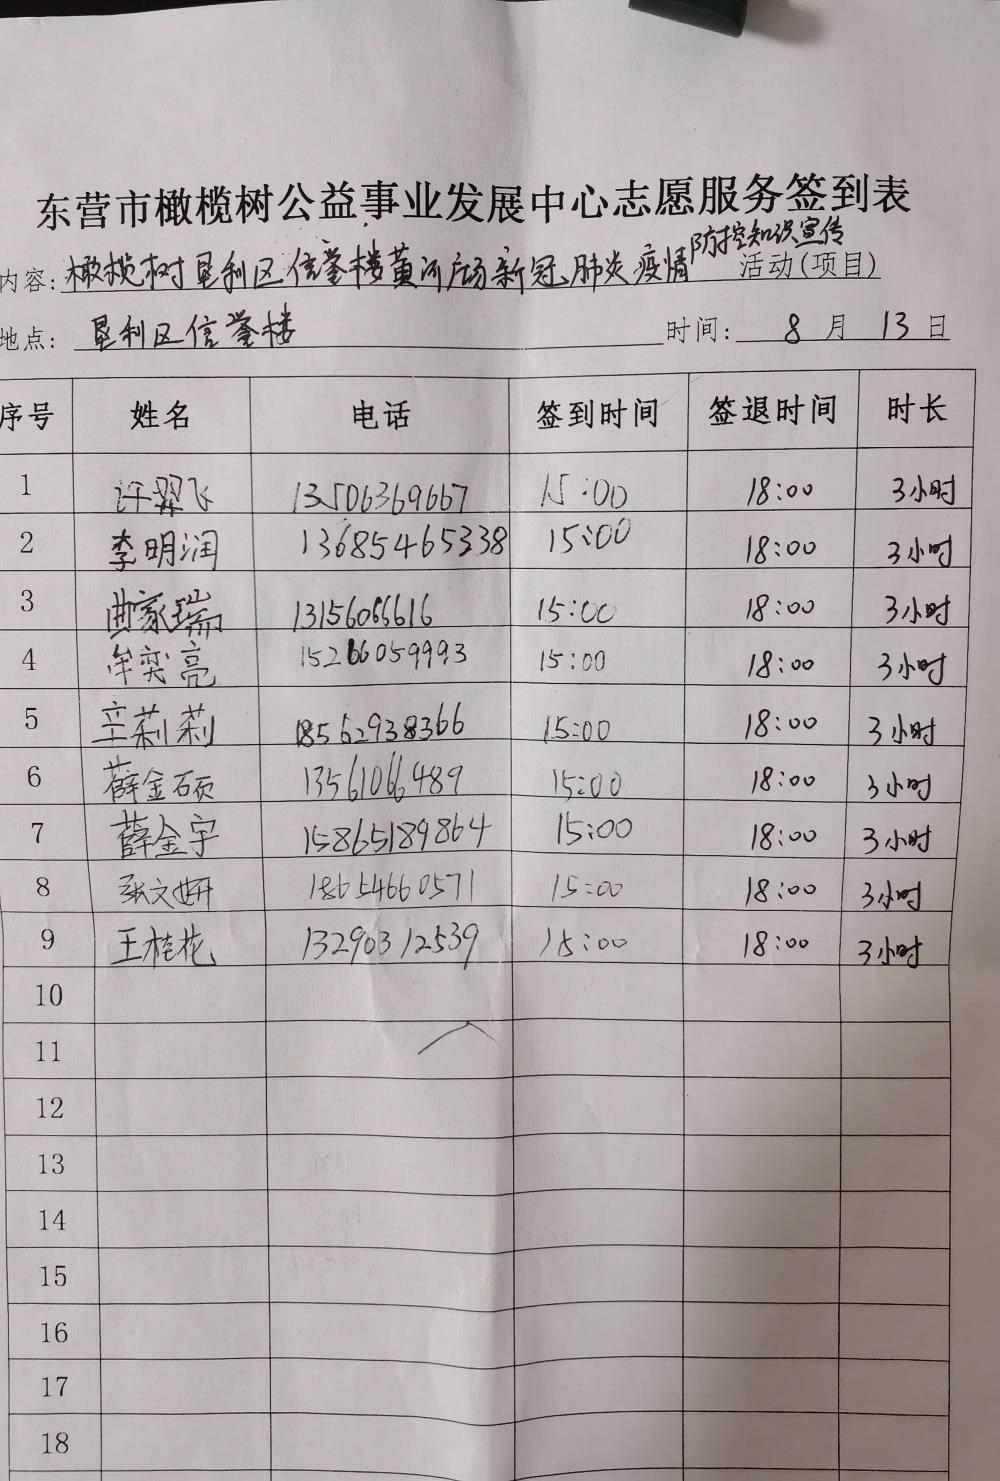 东营市橄榄树公益事业发展中心志愿服务签到表
防控知识宣传
内容: 橄榄树垦利区信誉楼黄河广场新冠肺炎疫情 活动(项目)
地点: 垦利区信誉楼 时间: 8 月 13 日
序号 姓名 电话 签到时间 签退时间 时长
1 许羿飞 13506369667 15:00 18:00 3小时
2 李明润 13685465338 15:00 18:00 3小时
3 曲家瑞 13156066616 15:00 18:00 3小时
4 牟奕亮 15266059993 15:00 18:00 3小时
5 辛莉莉 18562938366 15:00 18:00 3小时
6 薛金硕 13561066489 15:00 18:00 3小时
7 薛金宇 15865189864 15:00 18:00 3小时
8 张文妍 18654660571 15:00 18:00 3小时
9 王桂花 13290312539 15:00 18:00 3小时
10
11
12
13
14
15
16
17
18